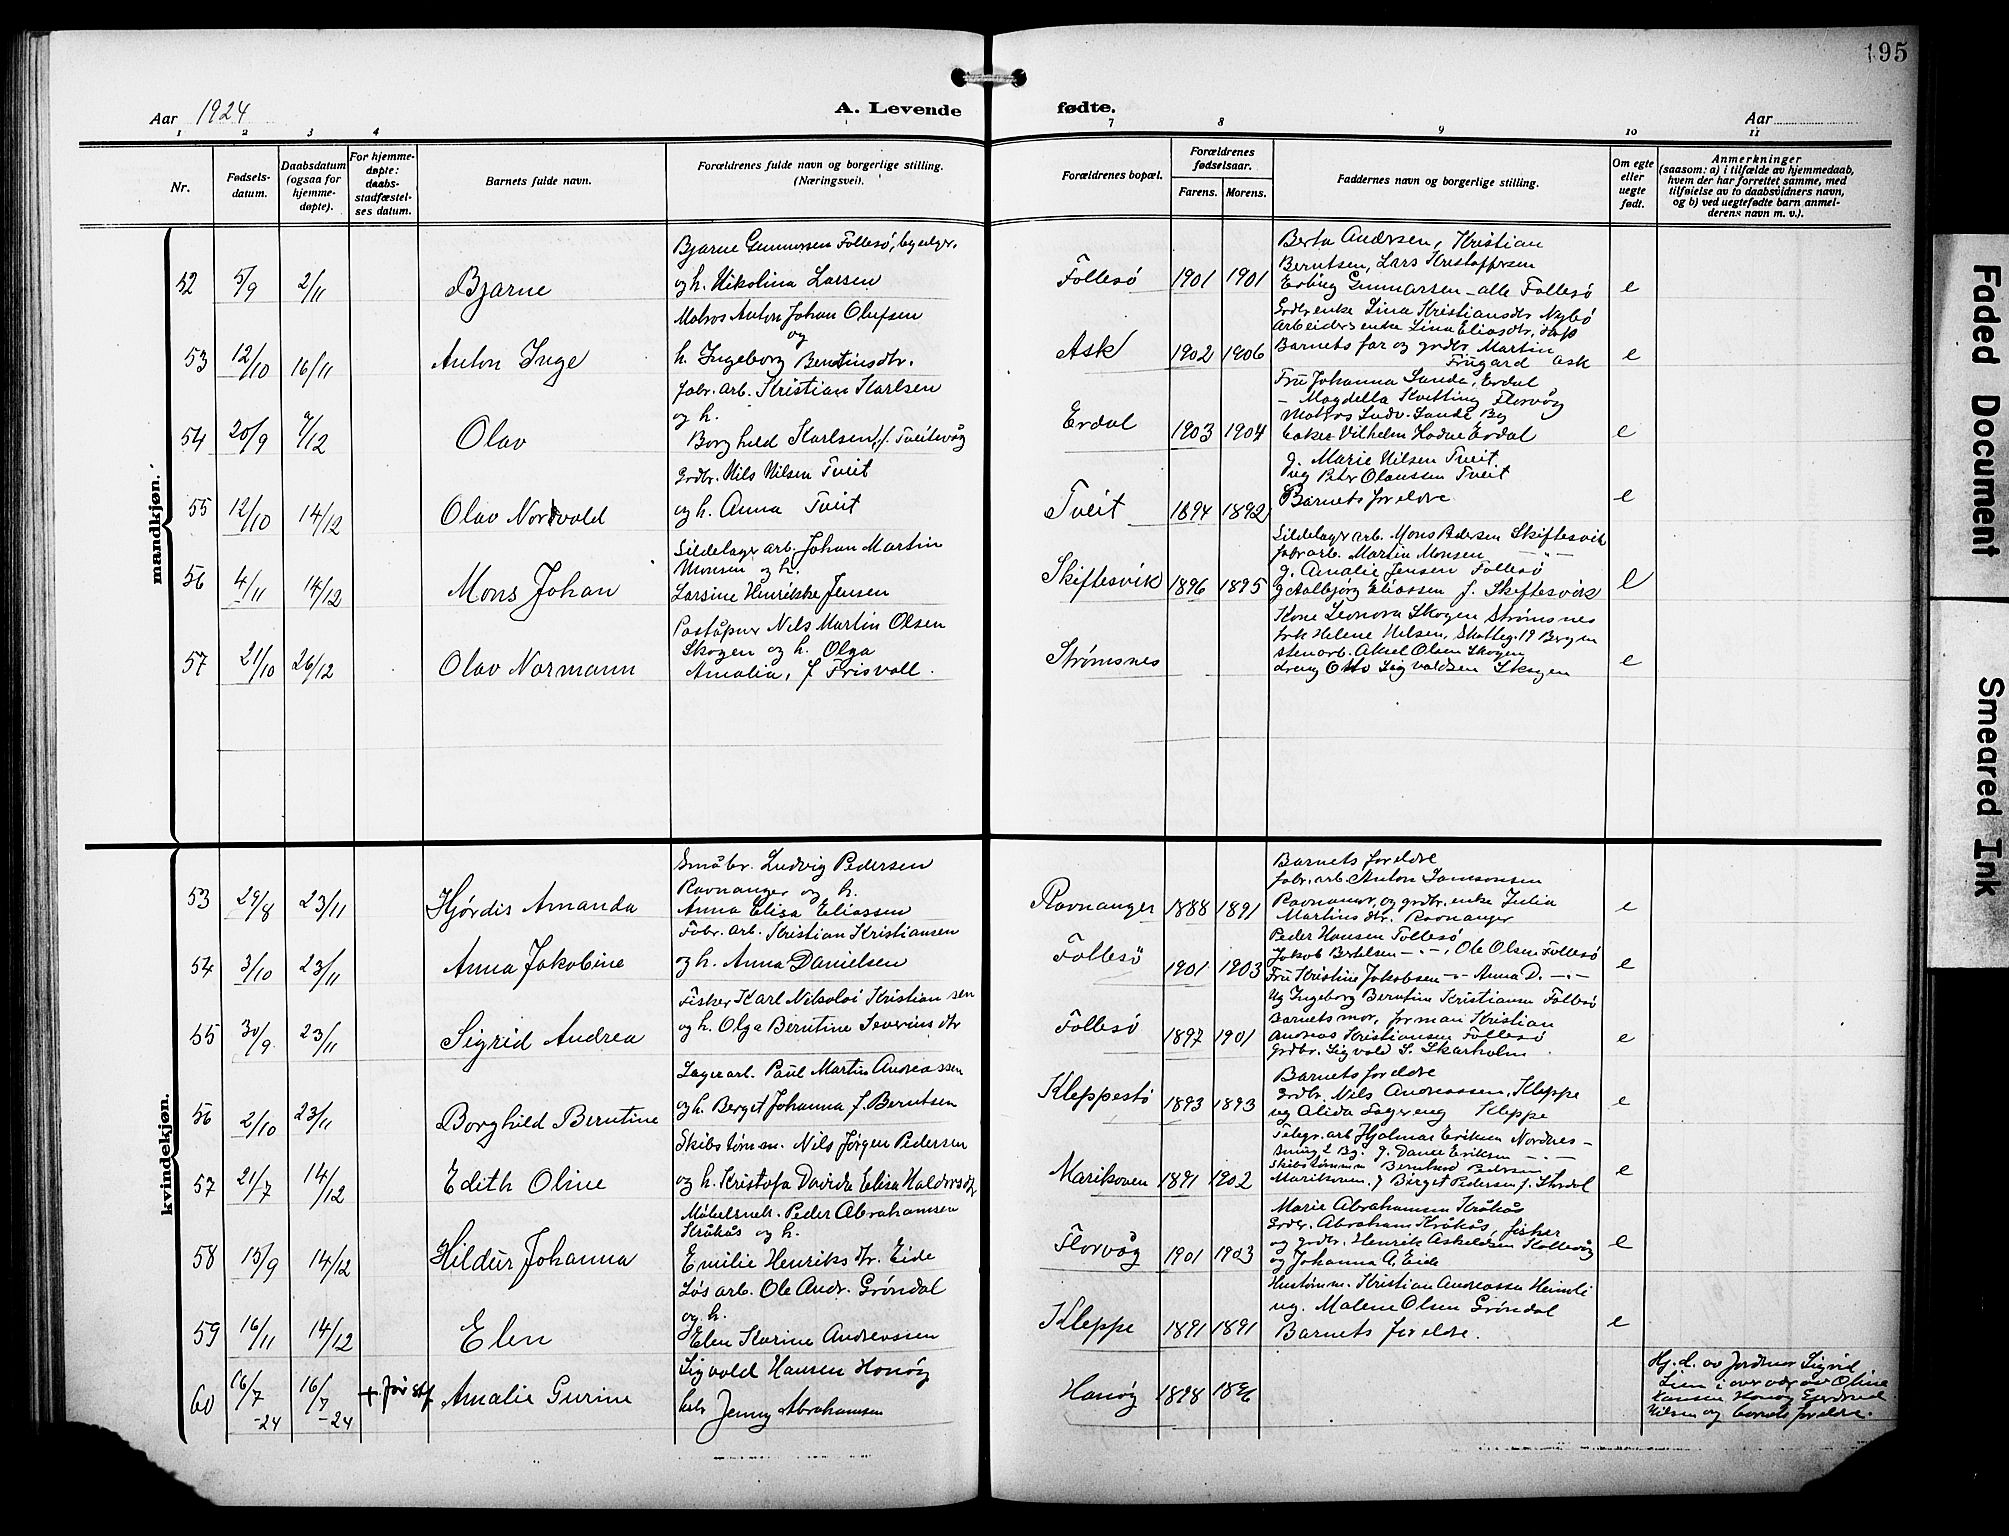 195
Aar 1924
A. Levende fødte.
Aar
1 2 3 4 7 8 9 10 11
Nr.
Fødsels-
datum.
Daabsdatum
(ogsaa for
hjemme-
døpte).
For hjemme-
døpte:
daabs-
stadfæstel-
ses datum.
Barnets fulde navn.
Forældrenes fulde navn og borgerlige stilling.
(Næringsvei).
Forældrenes bopæl.
Forældrenes
fødselsaar.
Farens. Morens.
Faddernes navn og borgerlige stilling.
Om egte
eller
uegte
født.
Anmerkninger
(saasom: a) i tilfælde av hjemmedaab,
hvem der har forrettet samme, med
tilføielse av to daabsvidners navn,
og b) ved uegtefødte barn anmel-
derens navn m. v.).
mandkjøn.
52 5/9 2/11 Bjarne
Bjarne Gunnarsen Follesö,
og h. Nikolina Larsen
Follesö 1901 1901
Berta Andersen, Kristian
Berntsen, Lars Kristoffersen
Gunnarsen - alle Follesö
e
53 12/10 16/11 Anton Inge
Matros Anton Johan Olufsen
og
h. Ingeborg Berntinsdtr.
Ask 1902 1906
Grdbr enke Lina Kristiansdtr Nybö
Arbeiders enke Lina Eliasdtr.
Barnets far og grdbr. Martin
Frugard Ask
e
54 20/9 7/12 Olav
Fabr. arb. Kristian Karlsen
og h.
Borghild Karlsen f. Tveitevåg
Erdal 1903 1904
Fru Johanna Sande, Erdal
- Magdella Kvitting Florvåg
Matros Ludv. Sande By
Vilhelm Hodne Erdal
e
55 12/10 14/12 Olav Nordvald
Grdbr. Nils Nilsen Tveit
og h. Anna Tveit
Tveit 1894 1892
g. Marie Nilsen Tveit
ug Peter Olaussen Tveit
Barnets foreldre
e
56 4/11 14/12 Mons Johan
Sildelager arb. Johan Martin
Monsen og h.
Larsine Henrikke Jensen
Skiftesvik 1896 1895
Sildelager arb. Mons Pedersen Skiftesvik
fabr arb. Martin Monsen - " -
g. Amalie Jensen Follesö
g Aalbjørg Eliassen f. Skiftesvik
e
57 21/10 26/12 Olav Normann
Poståpner Nils Martin Olsen
Skogen og h. Olga
Amalia, f Frisvoll.
Strømsnes
Kone Leonora Skogen Strømsnes
frk Helene Nilsen, Skotteg. 19 Bergen
stenarb. Aksel Olsen Skogen
dreng Otto Sigvaldsen Skogen
e
kvindekjøn.
53 29/8 23/11 Hjørdis Amanda
Småbr. Ludvig Pedersen
Ravnanger og h.
Anna Elisa Eliassen
Ravnanger 1888 1891
Barnets foreldre
fabr. arb. Anton Samsonsen
Ravnanger, og grdbr. enke Julia
Martins dtr. Ravnanger
e
54 3/10 23/11 Anna Jakobine
Fabr. arb. Kristian Kristiansen
og h. Anna Danielsen
Follesö 1901 1903
Peder Hansen Follesö
Jakob Bertelsen - " -, Ole Olsen Follesö
Fru Kristine Jakobsen - " - Anna D. - " -
e
55 30/9 23/11 Sigrid Andrea
Fisker Karl Nikolai Kristiansen
og h. Olga Berntine Severinsdtr
Follesö 1897 1901
Ug Ingeborg Berntine Kristiansen Follesö
Barnets mor, forman Kristian
Andreas Kristiansen Follesö
Grdbr. Sigvald S. Skarholm
e
56 2/10 23/11 Borghild Berntine
Lagerarb. Paul Martin Andreassen
og h. Berget Johanna f. Berntsen
Kleppestö 1893 1893
Barnets foreldre
Grdbr. Nils Andreassen, Kleppe
ug Alida Kleppe
e
57 21/7 14/12 Edith Oline
Skibstømm. Nils Jørgen Pedersen
og h. Kristofa Davida Elisa Haldorsdtr
Marikoven 1891 1902
Telegr. arb Hjalmar Eriksen Nordnes-
smug 2 By. g. Eriksen - " -
Skibstømm Bernhard Pedersen
Marikoven. g Birget Pedersen f. Stordal
e
58 15/9 14/12 Hildur Johanna
Møbelsnek. Peder Abrahamsen
Kråkås og h.
Emilie Henriks dtr. Eide
Florvåg 1901 1903
Marie Abrahamsen Kråkås
Grdbr. Abraham Kråkås, fisker
og grdbr. Henrik Askeldsen Kollevåg
og Johanna A. Eide
e
59 16/11 14/12 Elen
Løs arb. Ole Andr. Grøndal
og h.
Elen Karine Andreassen
Kleppe 1891 1891
Hustømm. Kristian Andreassen Heimli
ug. Malene Olsen Grøndal
Barnets foreldre.
e
60 16/7 -24 16/7 -24 + før stf Amalie Gurine
Sigvald Hansen Hanøy
Jenny Abrahamsen
Hanøy 1898 1896
Hj. d. av Jordmor Sigrid
Lien i overvær av Oline
Hansen Hanøy
Nilsen og barnets foreldre.
Faded Document
Smeared Ink